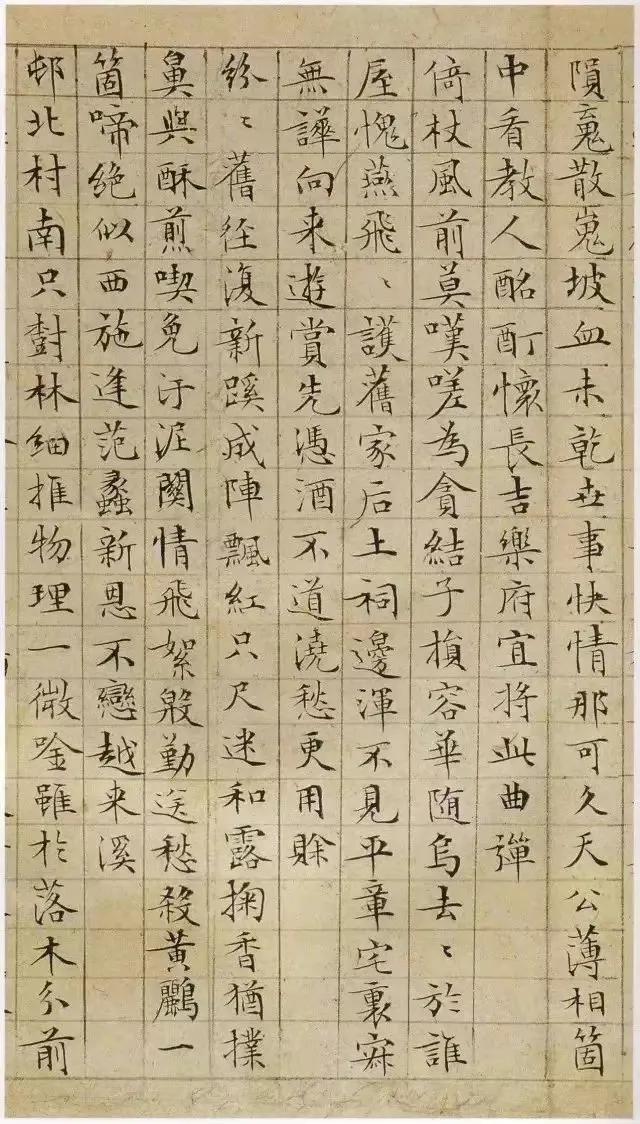 隕䰟散嵬坡血未乾世事快情那可久天公薄相箇
中看教人酩酊懷長吉樂府宜将此曲彈
倚杖風前莫嘆嗟為貪結子損容華随烏去〻於誰
屋愧燕飛〻護舊家后土祠邊渾不見平章宅裏寂
無譁向来遊賞先憑酒不道澆愁更用賒
紛〻舊径復新蹊成陣飄紅只尺迷和露掬香猶撲
鼻與酥煎喫免汙泥關情飛絮殷勤送愁殺黄鸝一
箇啼絶似西施逢范蠡新恩不戀越来溪
邨北村南只對林細推物理一微唫雖於落木分前